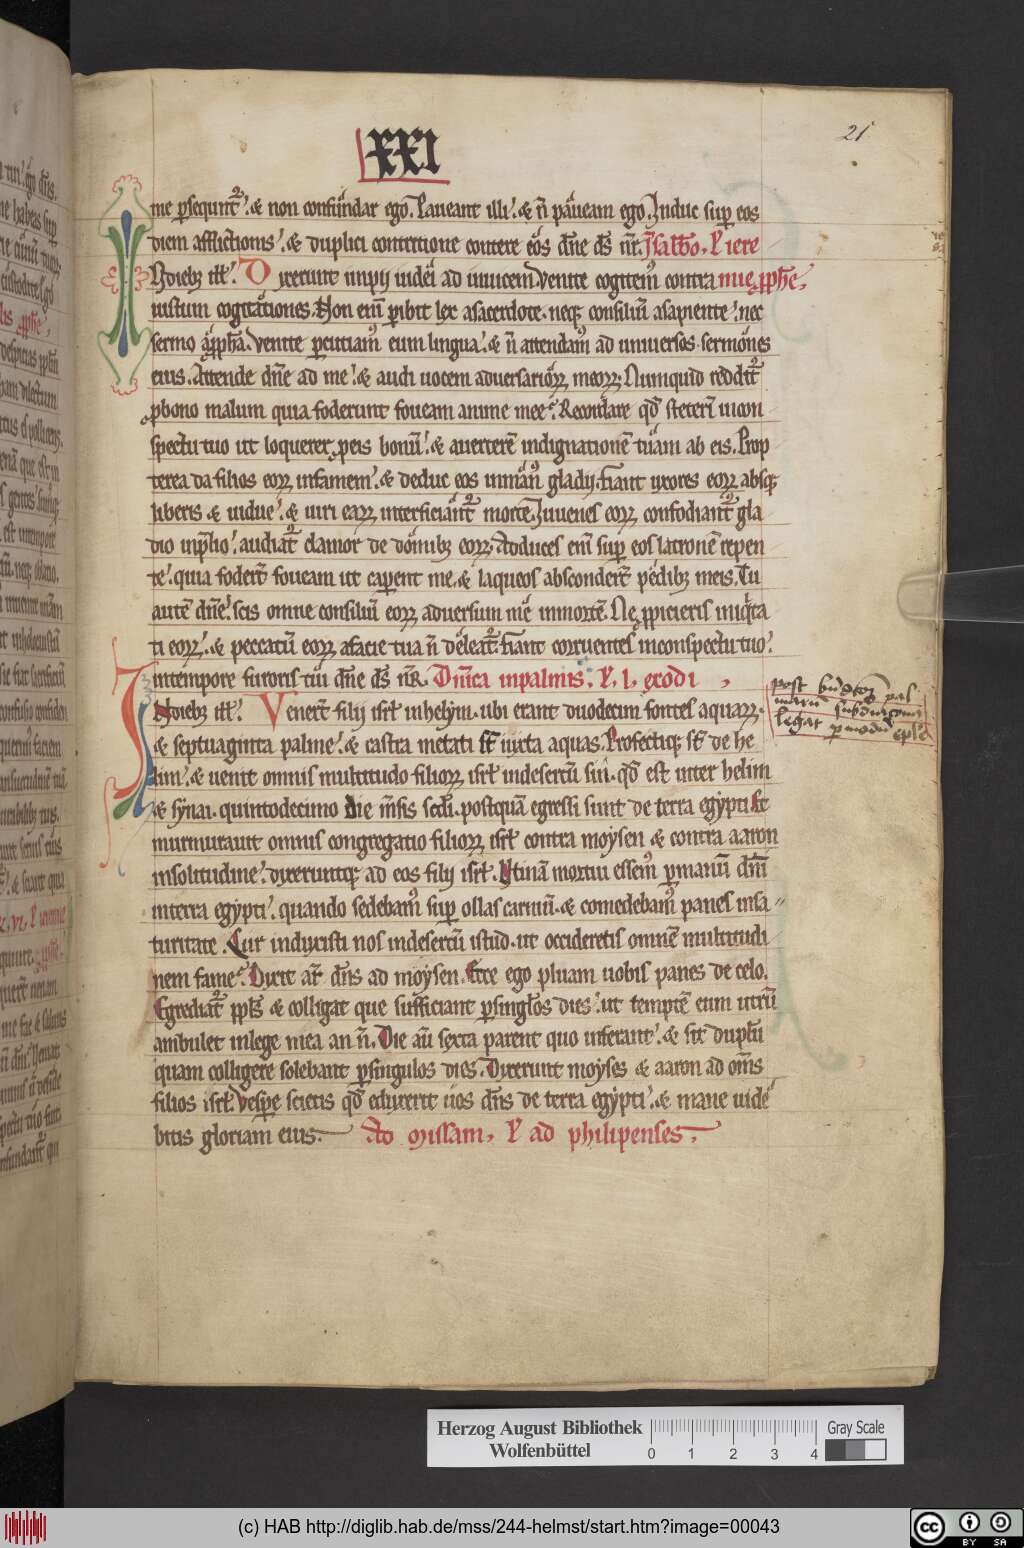 XXI
21
me ꝑsequnt᷑. & non confundar ego. Paueant illi. & n̄ paueam ego. Induc suꝑ eos
diem afflictionis. & duplici contritione contere eos dn̄e ds̄ nr̄. In sabb̄o. ł iere
In dieb; ill̄. Dixerunt impii iudei ad inuicem Venite cogitem᷒ contra mię ꝓph̄e.
iustum cogitationes. Non eni᷒ ꝑibit lex a sacerdote. neq; consiliū a sapiente. nec
sermo a ꝓph̄a. Venite ꝑcutiam᷒ eum lingua. & n̄ attendam᷒ ad uniuersos sermones
eius. Attende dn̄e ad me. & audi uocem aduersarioꝝ meoꝝ. Numquid reddit᷑
ꝓ bono malum quia foderunt foueam anime mee. Recordare qd̄ steteri᷒ in con
spectu tuo ut loquerer ꝓ eis bonū. & auerterē indignationē tuam ab eis. Prop
terea da filios eoꝝ in famem. & deduc eos in man᷒ gladii. Fiant uxores eoꝝ absq;
liberis & uidue. & uiri eaꝝ interficiant᷑ morte. Iuuenes eoꝝ confodiant᷑ gla
dio in p̄lio. audiat᷑ clamor de domib; eoꝝ. Adduces eni᷒ suꝑ eos latronē repen
te. quia foder̄t foueam ut caperent me. & laqueos absconder̄t pedib; meis. Tu
autē dn̄e. scis omne consiliū eoꝝ aduersum me in mortē. Ne ꝓpicieris iniq̇ta
ti eoꝝ. & peccatū eoꝝ a facie tua n̄ deleat᷑. Fiant corruentes in conspectu tuo.
in tempore furoris tui dn̄e ds̄ nr̄. Dn̄ica in palmis. ł. l. exodi
In dieb; ill̄. Vener̄t filii isrł in helym. ubi erant duodecim fontes aquaꝝ.
& septuaginta palme. & castra metati st̄ iuxta aquas. Profectiq; st̄ de he
lim. & uenit omnis multitudo filioꝝ isrł in desertū sin. qd̄ est inter helim
& synai. quintodecimo die m̄sis sc̄di. postquā egressi sunt de terra egypti Et
murmurauit omnis congregatio filioꝝ isrł contra moysen & contra aaron
in solitudine. dixeruntq; ad eos filii isrł. Utinā mortui essem᷒ ꝑ manū dn̄i
in terra egypti. quando sedebam᷒ suꝑ ollas carniū. & comedebam᷒ panes in sa
turitate. Cur induxisti nos in desertū istud. ut occideretis omnē multitudi
nem fame. Dixit aut̄ dn̄s ad moysen. Ecce ego pluam uobis panes de celo.
Egrediat᷑ ppl̄s & colligat que sufficiant ꝑ singl̄os dies. ut temptē eum utrū
ambulet in lege mea an n̄. Die aū sexta parent quo inferant. & sit duplū
quam colligere solebant ꝑ singulos dies. Dixerunt moyses & aaron ad om̄s
filios isrł. Vespe scietis qd̄ eduxerit uos dn̄s de terra egypti. & mane uide
bitis gloriam eius. Ad missam. ł ad philipenses.
post
legat
Herzog August Bibliothek
Wolfenbüttel
0 1 2 3 4
Gray Scale
(c) HAB http://diglib.hab.de/mss/244-helmst/start.htm?image=00043
cc BY SA